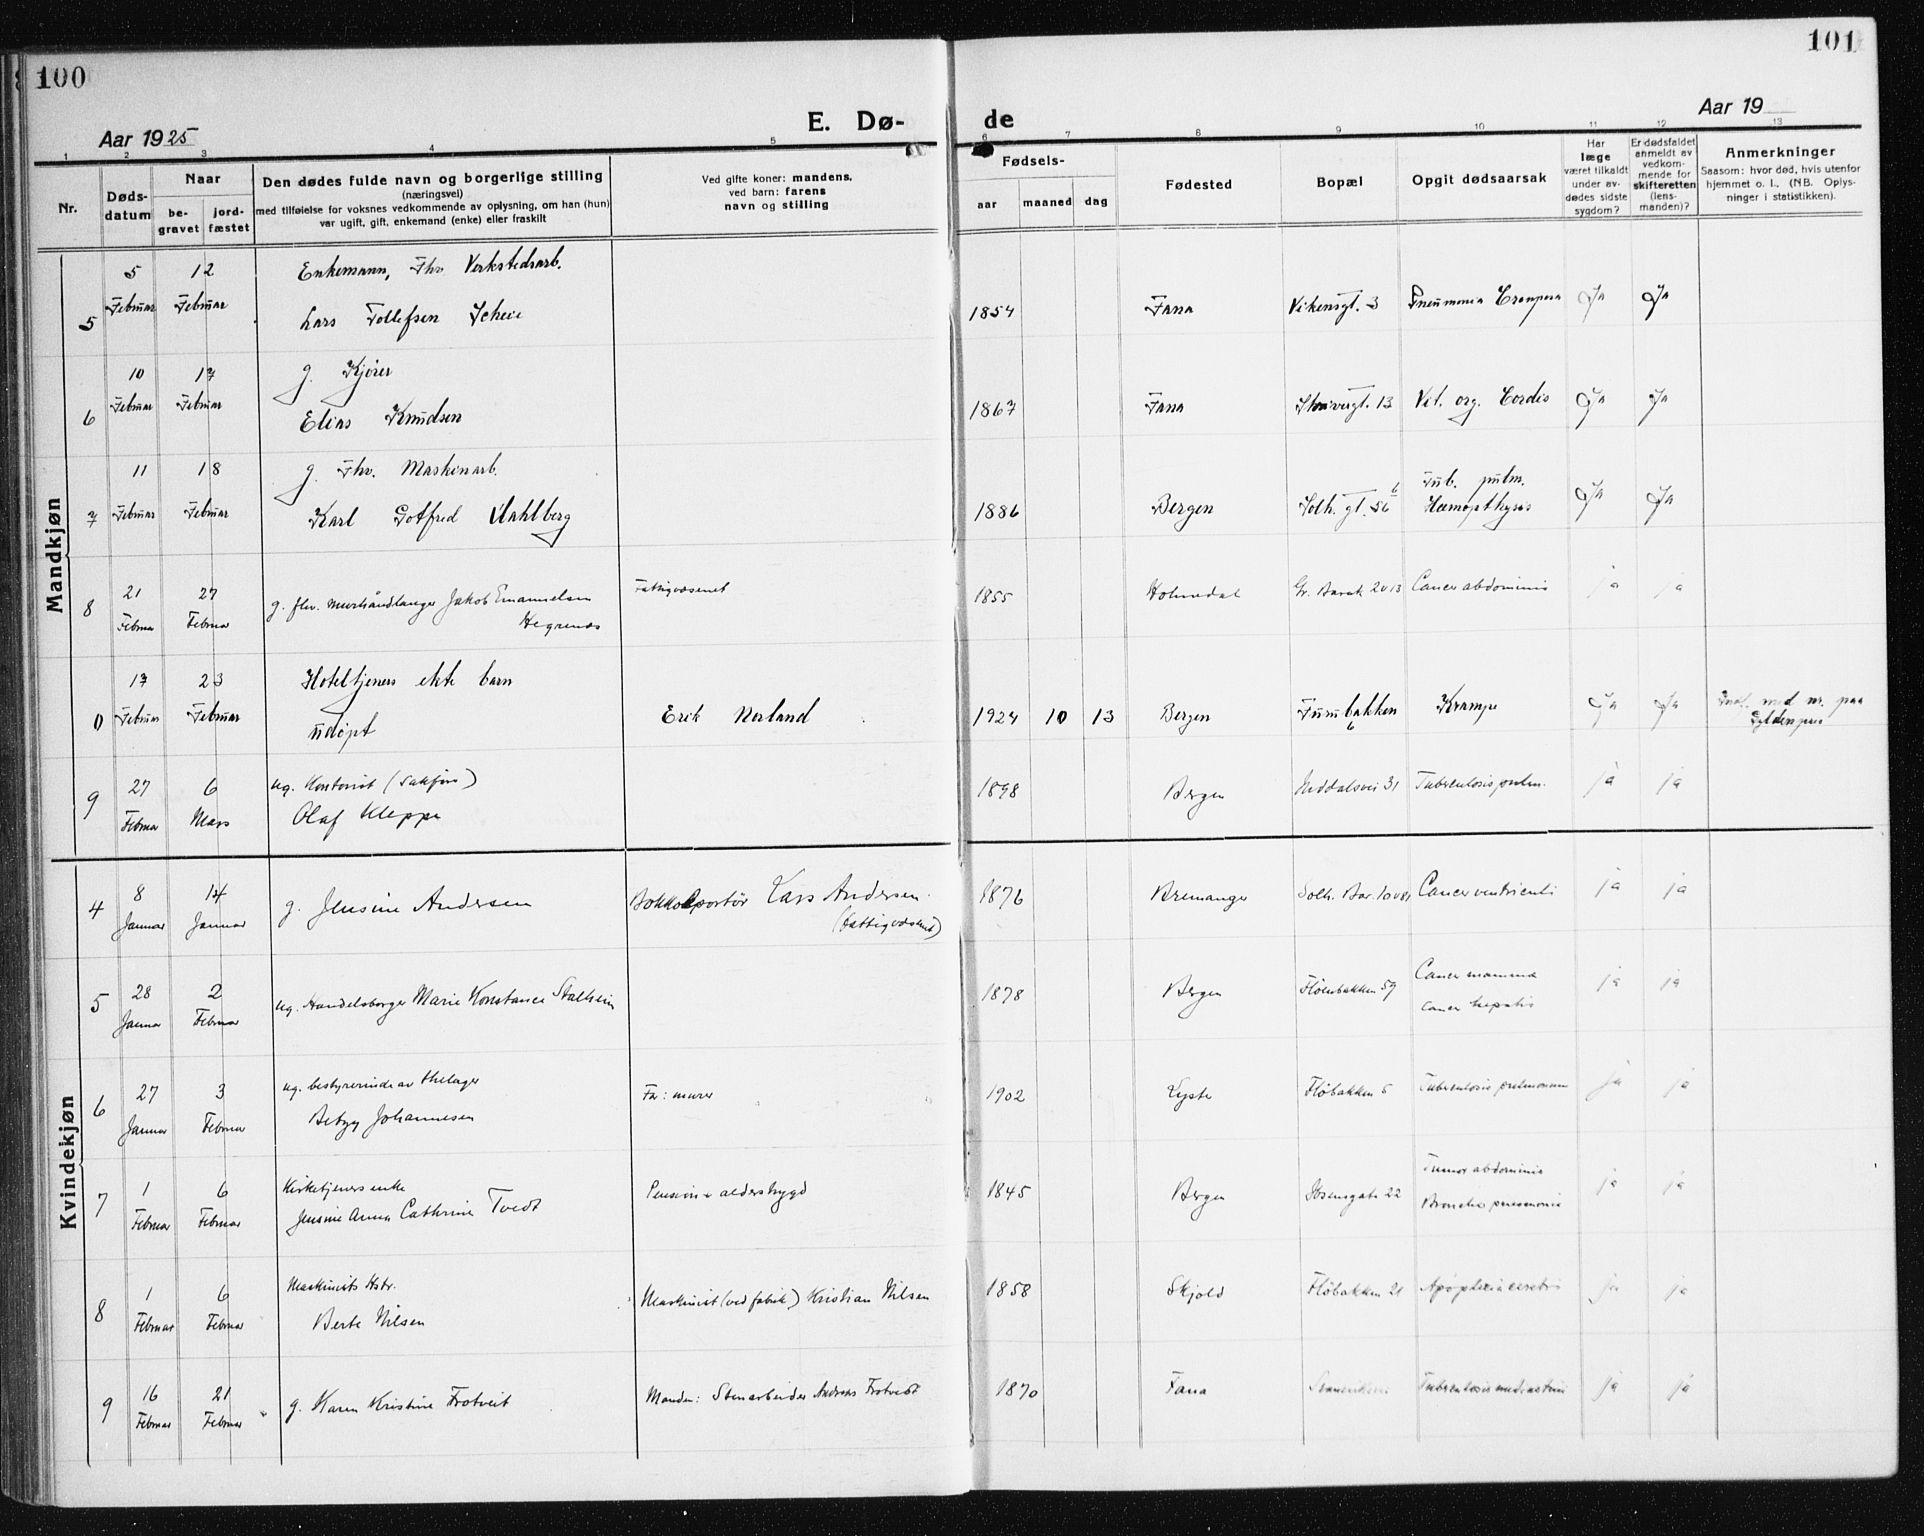 100
101
Aar 1925
E. Dø-
de
Aar 19
1 2 3 4 5 6 7 8 9 10 11 12 13
Nr.
Døds-
datum
Naar
be-
gravet
jord-
fæstet
Den dødes fulde navn og borgerlige stilling
(næringsvei)
med tilføielse for voksnes vedkommende av oplysning, om han (hun)
var ugift, gift, enkemand (enke) eller fraskilt
Ved gifte koner: mandens,
ved barn: farens
navn og stilling
Fødsels-
aar maaned dag
Fødested
Bopæl
Opgit dødsaarsak
Har
læge
været tilkaldt
under av-
dødes sidste
sygdom?
Er dødsfaldet
anmeldt av
vedkom-
mende for
skifteretten
(lens-
manden)?
Anmerkninger
Saasom: hvor død, hvis utenfor
hjemmet o. l. (NB. Oplys-
ninger i statistikken).
Mandkjøn
5 5 Februar 12 Februar Enkemann, Fhv Verkstedsarb.
Lars Tollefsen Scheie 1854 Fana Vikensgt. 3 Pneumonia Crouposa Ja Ja
6 10 Februar 17 Februar g. Kjører
Elias Knudsen 1867 Fana 13 Vit. org. Cordis Ja Ja
7 11 Februar 18 Februar g. Fhv. Maskinarb.
Karl Gotfred Dahlberg 1886 Bergen Solh. gt. 56 Tub. pulm.
Hæmopthysis Ja Ja
8 21 Februar 27 Februar g. fhv. murhåndlanger Jakob Emanuelsen
Hegrenæs Fattigvæsenet 1855 Holmedal Gr. Barak 20 13 Cancer abdominis ja ja
0 17 Februar 23 Februar Hoteltjeners ekte barn
udøpt Erik Norland 1924 10 13 Bergen 6 Krampe Ja Ja med nr. paa
Gyldenpris
9 27 Februar 6 Mars ug. Kontorist (Sakfører)
Olaf Kleppe 1898 Bergen Nddalsvei 31 Tuberculosis pulm. ja ja
Kvindekjøn
4 8 Januar 14 Januar g. Jensine Andersen Bokkolportør Lars Andersen
(fattigvæsenet) 1876 Bremanger Solh. Bar. Cancer ventriculi ja ja
5 28 Januar 2 Februar ug. Handelsborger Marie Konstance Stalheim 1878 Bergen Fløenbakken 59 Cancer mamma
cancer hepatis ja ja
6 27 Januar 3 Februar ug. bestyrerinde av thelager
Betzy Johannesen Far: murer 1902 Lyster Fløbakken 5 Tuberculosis pulmonum ja ja
7 1 Februar 6 Februar Kirketjeners enke
Jensine Anna Cathrine Tvedt Pension + alderstrygd 1845 Bergen Ibsensgate 22 Tumor abdominis
Broncho pneumonie ja ja
8 1 Februar 6 Februar Maskinists Hstr.
Berte Nilsen Maskinist (ved fabrik) Kristian Nilsen 1858 Skjold Fløbakken 21 Apoplexia cerebri ja ja
9 16 Februar 21 Februar g. Karen Kristine Trotveit Manden: Stenarbeider Andreas Trotveit 1870 Fana ja ja